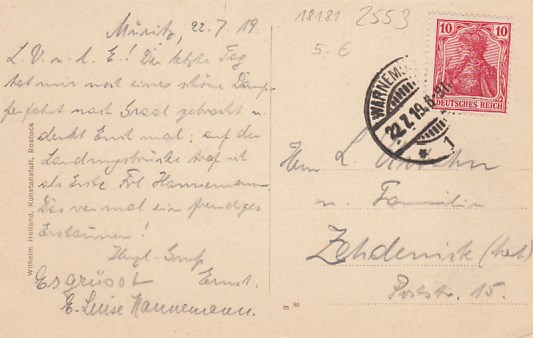 Müritz, 22.7.19
L. V. u. l. E.! Der letzte Tag
hat mir noch eine schöne Damp-
ferfahrt nach Graal gebracht u.
denkt Euch mal; auf der
Landungsbrücke traf ich
als Erste Frl Hannemann
Das war mal ein freudiges
Erstaunen!
Herzl. Gruß
Ernst.
Es grüsst
E. Luise Hannemann.
18181 2553
5.- €
10 10
DEUTSCHES REICH
WARNEMÜ
22.7.19.
* 1
Herrn L.
u. Familie
Zehdenick
Poststr. 15.
Wilhelm Heiland, Kunstanstalt, Rostock